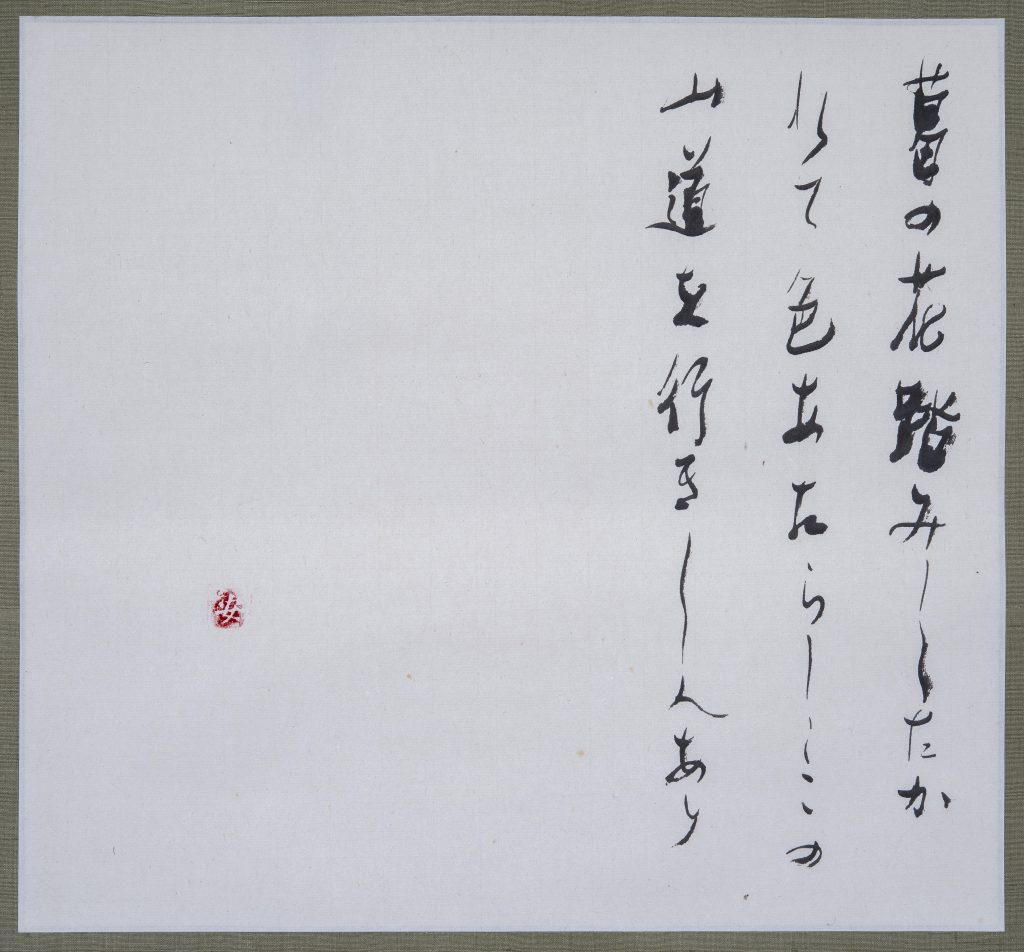 葛の花踏みしたか
れて色あたらしこの
山道を行きし人あり